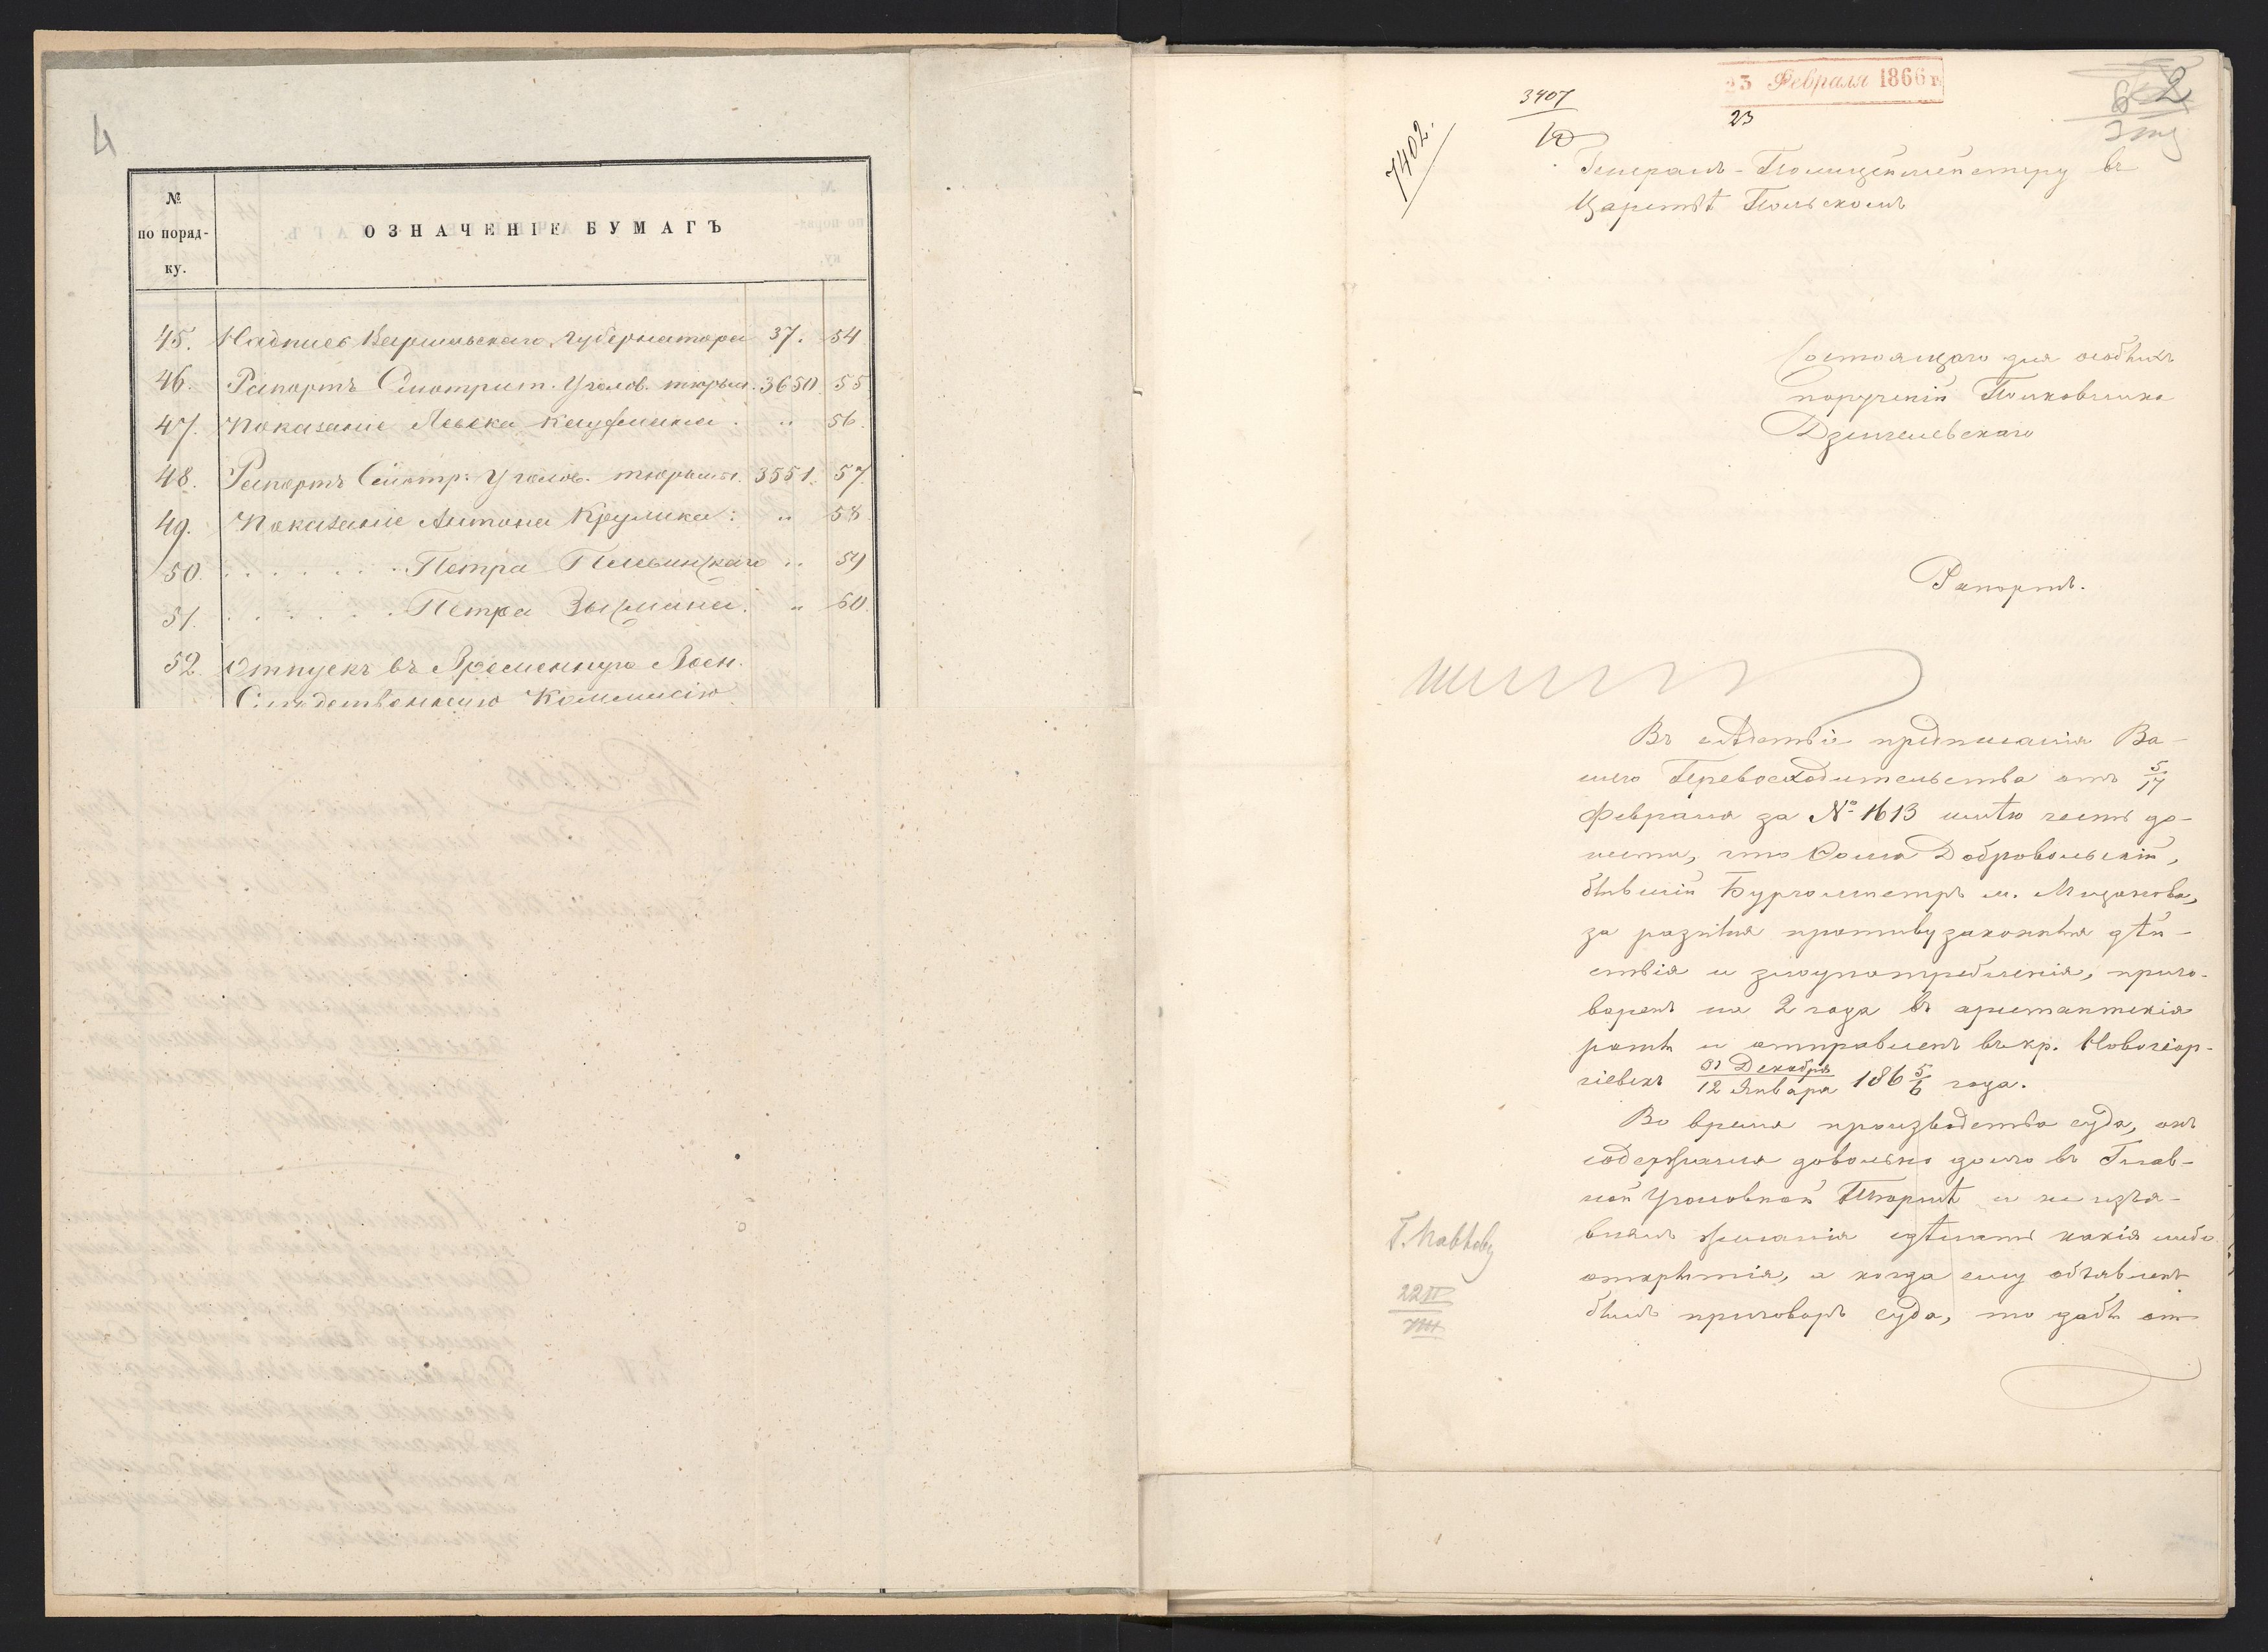 4
№
по поряд-
ку.
ОЗНАЧЕНІЕ БУМАГЪ
45. Надпись Варшавскаго Губернатора 37. 54
46. Рапортъ Смотрит. Уголов. тюрьм. 3650. 55
47. Показаніе Левека Кауфмана. „ 56.
48. Рапортъ Смотр. Уголов. тюрьмы. 3551. 57.
49. Показаніе Антона Крулика: „ 58
50. . . . . . . . Петра „ 59
51. . . . . . . . Петра „ 60.
52. Отпускъ въ Временную Воен.
Слѣдственную Коммисію
23 Февраля 1866 г.
2
3407
10
23
7402.
Генералъ-Полицеймейстеру въ
Царствѣ Польскомъ
Состоящаго для особыхъ
порученій Полковника
Дзичельскаго
Рапортъ.
Въ слѣдствіе предписанія Ва-
шего Превосходительства отъ 5/17
Февраля за № 1613 имѣю честь до-
нести, что Фома Добровольскій,
бывшій Бургомистръ м. Мщонова,
за разныя противузаконныя дѣй-
ствія и злоупотребленія, приго-
воренъ на 2 года въ арестантскія
роты и отправленъ въ кр. Новогеор-
гіевскъ 31 Декабря/12 Января 186 5/6 года.
Во время производства суда, онъ
содержался довольно долго въ Глав-
ной Уголовной Тюрьмѣ и не изъя-
влялъ желанія сдѣлать какія либо
открытія, а когда ему объявленъ
былъ приговоръ суда, то дабы от
Г. Павлову
22 II